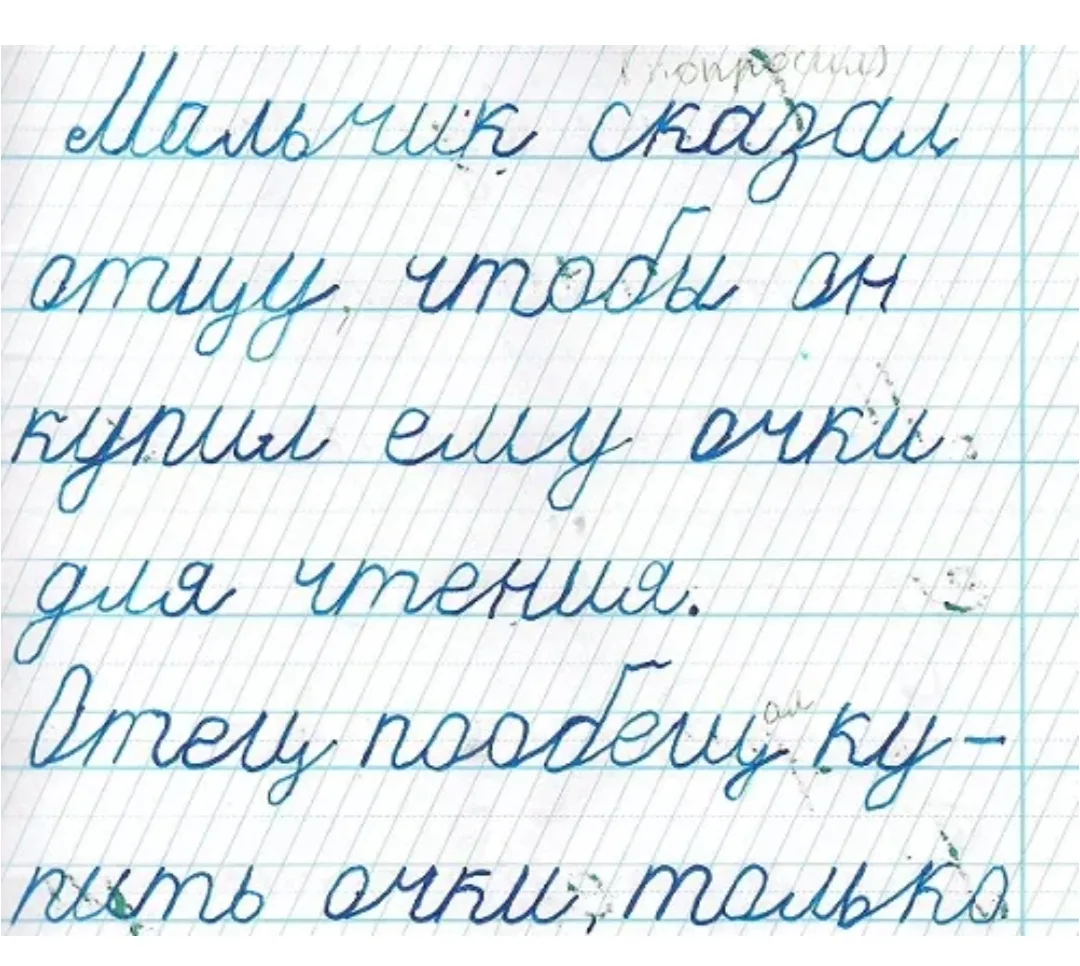 (попросил)
Мальчик сказал
отцу, чтобы он
купил ему очки
для чтения.
ал
Отец пообещ ку-
пить очки, только